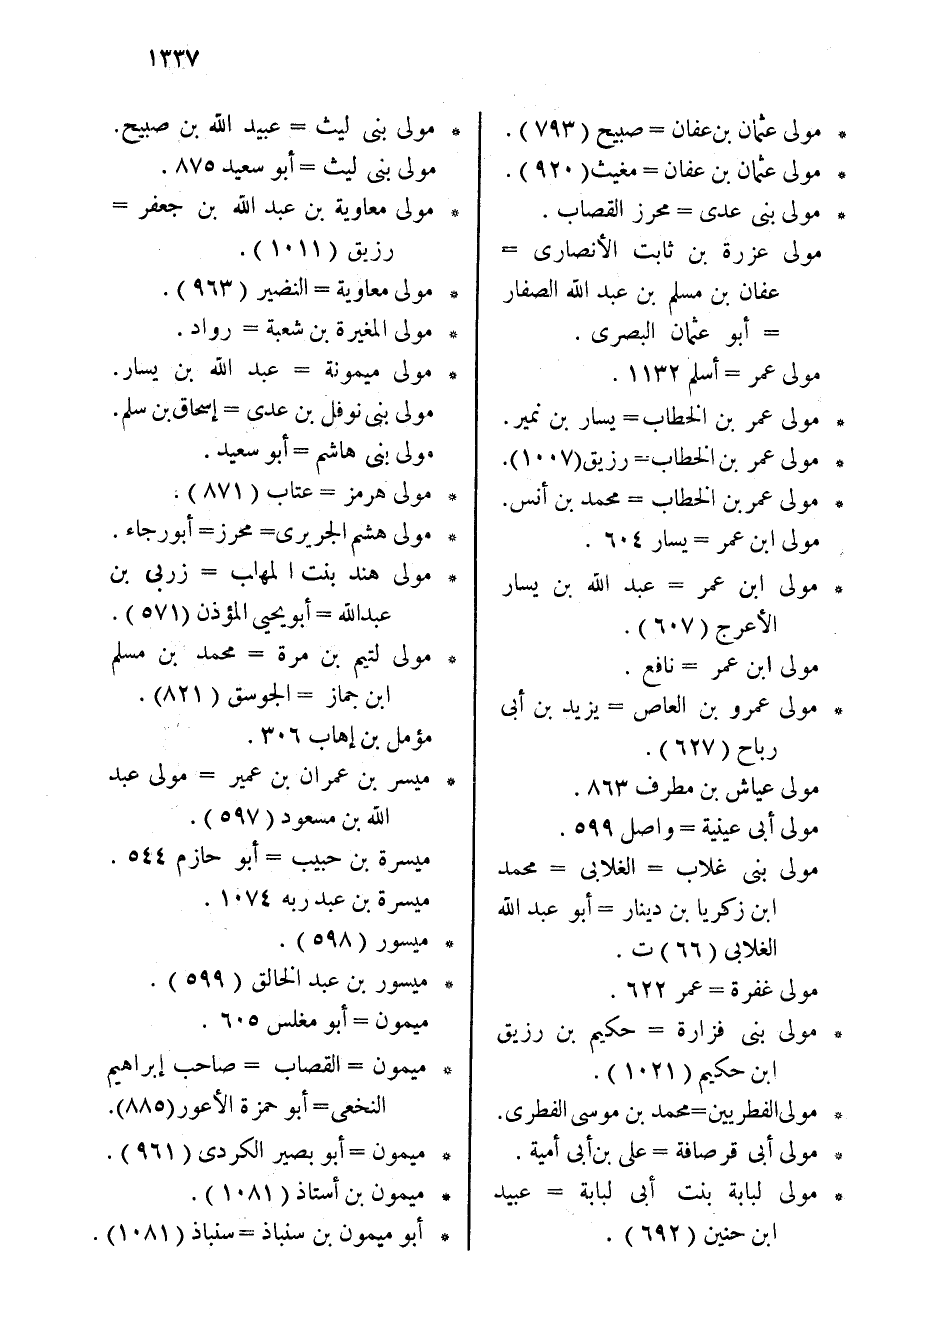 ١٣٣٧
* مولى عثمان بن عفان = صبيح (٧٩٣) .
* مولى عثمان بن عفان = مغيث (٩٢٠) .
* مولى بنى عدى = محرز القصاب .
مولى عزرة بن ثابت الأنصارى =
عفان بن مسلم بن عبد الله الصفار
= أبو عثمان البصرى .
مولى عمر = أسلم ١١٣٢ .
* مولى عمر بن الخطاب = يسار بن نمير .
* مولى عمر بن الخطاب = رزيق (١٠٠٧) .
* مولى عمر بن الخطاب = محمد بن أنس .
مولى ابن عمر = يسار ٦٠٤ .
* مولى ابن عمر = عبد الله بن يسار
الأعرج (٦٠٧) .
مولى ابن عمر = نافع .
* مولى عمرو بن العاص = يزيد بن أبى
رباح (٦٢٧) .
مولى عياش بن مطرف ٨٦٣ .
مولى أبى عينية = واصل ٥٩٩ .
مولى بنى غلاب = الغلابى = محمد
ابن زكريا بن دينار = أبو عبد الله
الغلابى (٦٦) ت .
مولى غفرة = عمر ٦٢٢ .
* مولى بنى فزارة = حكيم بن رزيق
ابن حكيم (١٠٢١) .
* مولى الفطريين = محمد بن موسى الفطرى .
* مولى أبى قرصافة = على بن أبى أمية .
* مولى لبابة بنت أبى لبابة = عبيد
ابن حنين (٦٩٢) .
* مولى بنى ليث = عبيد الله بن صبيح .
مولى بنى ليث = أبو سعيد ٨٧٥ .
* مولى معاوية بن عبد الله بن جعفر =
رزيق (١٠١١) .
* مولى معاوية = النضير (٩٦٣) .
* مولى المغيرة بن شعبة = رواد .
* مولى ميمونة = عبد الله بن يسار .
مولى بنى نوفل بن عدى = إسحاق بن سلم .
مولى بنى هاشم = أبو سعيد .
* مولى هرمز = عتاب (٨٧١) .
* مولى هشم الجريرى = محرز = أبو رجاء .
* مولى هند بنت المهاب = زربى بن
عبد الله = أبو يحيى المؤذن (٥٧١) .
* مولى لتيم بن مرة = محمد بن مسلم
ابن جماز = الجوسق (٨٢١) .
مؤمل بن إهاب ٣٠٦ .
* ميسر بن عمران بن عمير = مولى عبد
الله بن مسعود (٥٩٧) .
ميسرة بن حبيب = أبو حازم ٥٤٤ .
ميسرة بن عبد ربه ١٠٧٤ .
* ميسور (٥٩٨) .
* ميسور بن عبد الخالق (٥٩٩) .
ميمون = أبو مغلس ٦٠٥ .
* ميمون = القصاب = صاحب إبراهيم
النخعى = أبو حمزة الأعور (٨٨٥) .
* ميمون = أبو بصير الكردى (٩٦١) .
* ميمون بن أستاذ (١٠٨١) .
* أبو ميمون بن سنباذ = سنباذ (١٠٨١) .